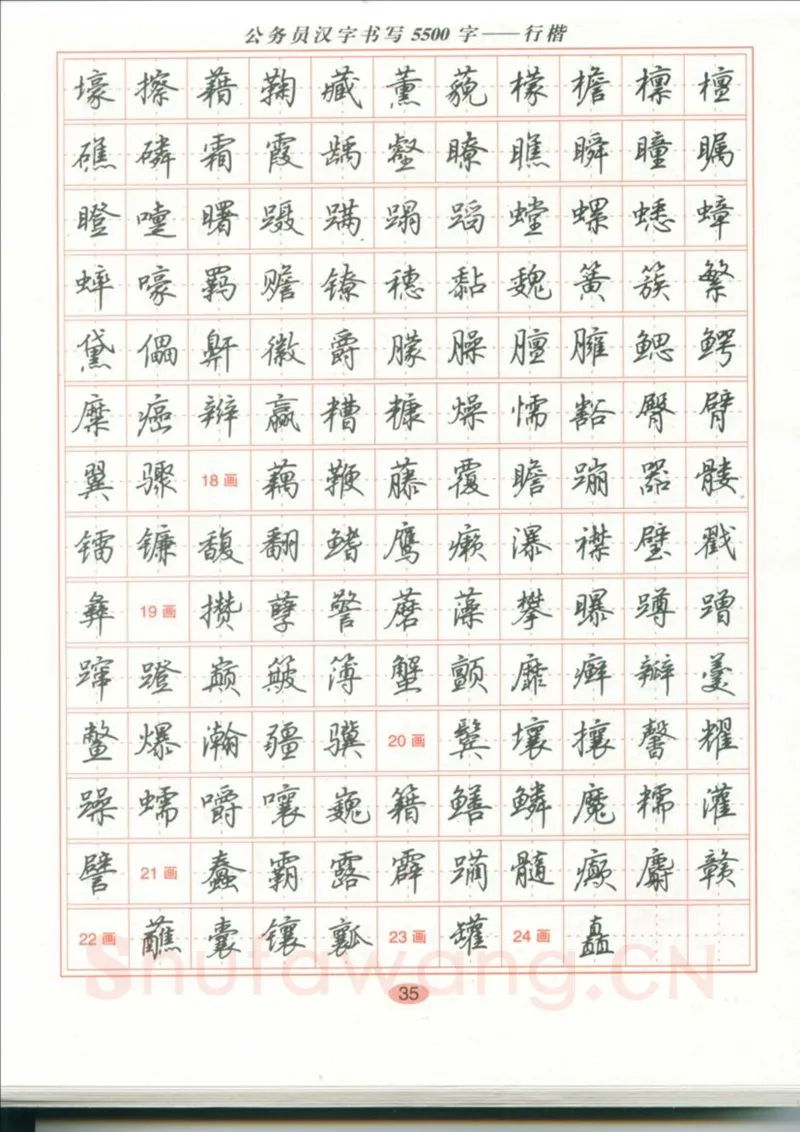 公务员汉字书写5500字——行楷
壕 擦 藉 鞠 藏 薰 藐 檬 檐 檩 檀
礁 磷 霜 霞 龋 壑 瞭 瞧 瞬 瞳 瞩
瞪 嚏 曙 蹑 蹒 蹋 蹈 螳 螺 蟋 蟑
蟀 嚎 羁 赡 镣 穗 黏 魏 簧 簇 繁
黛 儡 鼾 徽 爵 朦 臊 膻 臃 鳃 鳄
糜 癌 辫 赢 糟 糠 燥 懦 豁 臀 臂
翼 骤 18画 藕 鞭 藤 覆 瞻 蹦 嚣 髅
镭 镰 馥 翻 鳍 鹰 癞 瀑 襟 璧 戳
彝 19画 攒 孽 警 蘑 藻 攀 曝 蹲 蹭
蹿 蹬 巅 簸 簿 蟹 颤 靡 癣 瓣 羹
鳖 爆 瀚 疆 骥 20画 鬓 壤 攘 馨 耀
躁 蠕 嚼 嚷 巍 籍 鳝 鳞 魔 糯 灌
譬 21画 蠢 霸 露 霹 躏 髓 癫 麝 赣
22画 蘸 囊 镶 瓤 23画 罐 24画 矗
Shufawang.CN
35